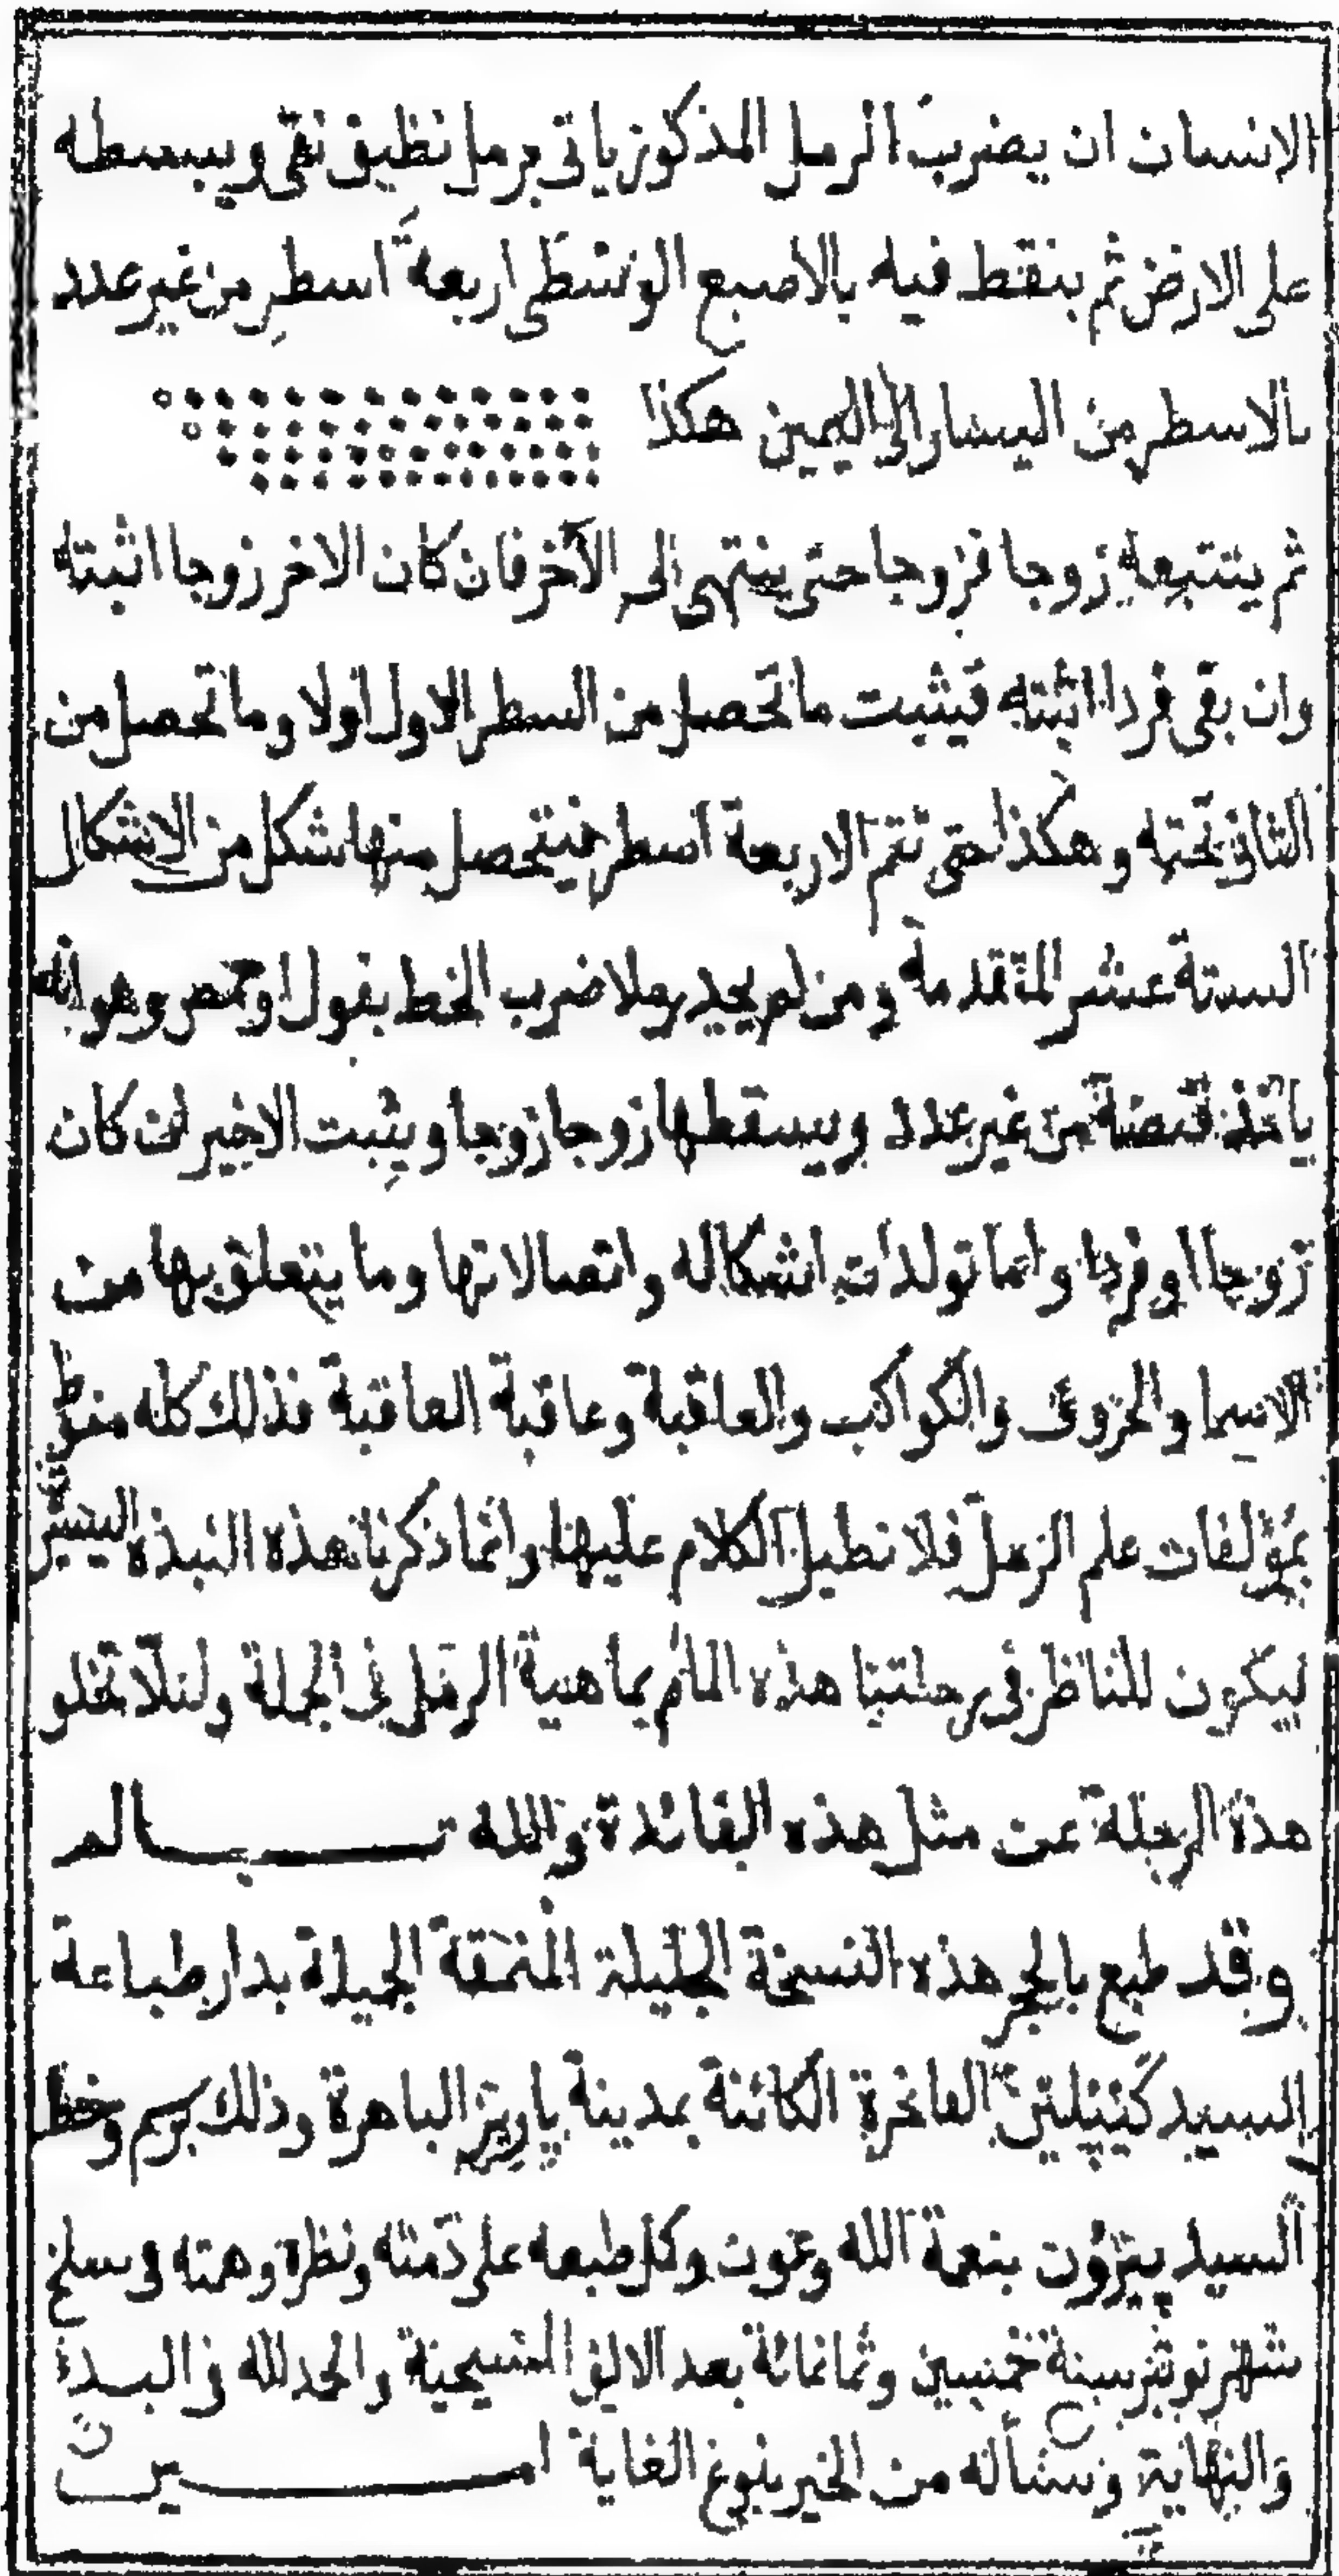 الانسان ان يضرب الرمل المذكور ياتى برمل نظيف نقى ويبسطه
على الارض ثم ينقط فيه بالاصبع الوسطى اربعة اسطر من غير عدد
بالاسطر من اليسار الى اليمين هكذا
ثم يتتبعه زوجا فزوجا حتى ينتهى الى الآخر فان كان الاخر زوجا اثبته
وان بقى فردا اثبته فيثبت ما تحصل من السطر الاول اولا وما تحصل من
الثانى تحته وهكذا حتى تتم الاربعة اسطر فيتحصل منها شكل من الاشكال
الستة عشر المتقدمة ومن لم يجد رملا ضرب الخط بفول او حمص وهو انه
ياخذ قبضة من غير عدد ويسقطها زوجا زوجا ويثبت الاخير ان كان
زوجا او فردا واما تولدات اشكاله واتصالاتها وما يتعلق بها من
الاسما والحروف والكواكب والعاقبة وعاقبة العاقبة فذلك كله منوط
بمؤلفات علم الرمل فلا نطيل الكلام عليها وانما ذكرنا هذه النبذة اليسيرة
ليكون للناظر فى رحلتنا هذه المام بماهية الرمل فى الجملة ولئلا تخلو
هذه الرحلة عن مثل هذه الفائدة والله
وقد طبع بالحجر هذه النسخة الجليلة المنمقة الجميلة بدار طباعة
السيد كپيلين الفاخرة الكائنة بمدينة پاريز الباهرة وذلك برسم وخط
السيد پيرون بنعمة الله وعون وكل طبعه على ذمته ونظره وهمته فى سلخ
شهر نونبر سنة خمسين وثمانمائة بعد الالف المسيحية والحمد لله فى البدء
والنهاية ونسأله من الخير بلوغ الغاية امــــين